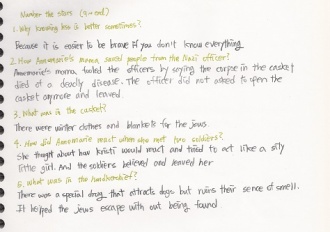 Number the stars (9~end)
1. Why knowing less is better sometimes?
Because it is easier to be brave if you don't know everything
2. How Annemarie's mama, saved people from the Nazi officer?
Annemarie's mama, fooled the officers by saying the corpse in the casket
died of a deadly disease. The officer did not asked to open the
casket anymore and leaved.
3. What was in the casket?
There were winter clothes and blankets for the Jews
4. How did Annemarie react when she met two soldiers?
She thought about how Kristi would react and tried to act like a silly
little girl. And the soldiers believed and leaved her
5. What was in the handkerchief?
There was a special drug that attracts dogs but ruins their sence of smell.
It helped the Jews escape with out being found